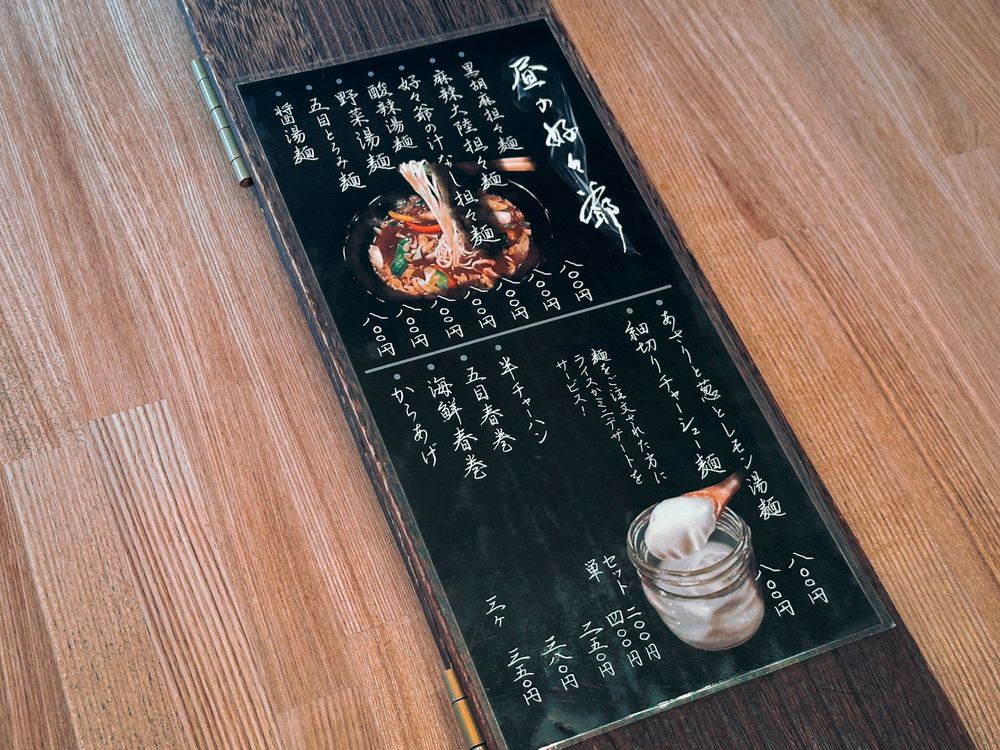 昼の好々爺
黒胡麻担々麺 八〇〇円
麻辣大陸担々麺 八〇〇円
好々爺の汁なし担々麺 八〇〇円
酸辣湯麺 八〇〇円
野菜湯麺 八〇〇円
五目とろみ麺 八〇〇円
醤湯麺 八〇〇円
あさりと葱とレモン湯麺 八〇〇円
細切りチャーシュー麺 八〇〇円
麺をご注文された方に
ライスかミニデザートを
サービス!
半チャーハン セット 二〇〇円
単 四〇〇円
五目春巻 三五〇円
海鮮春巻 三八〇円
からあげ 三ヶ 三五〇円